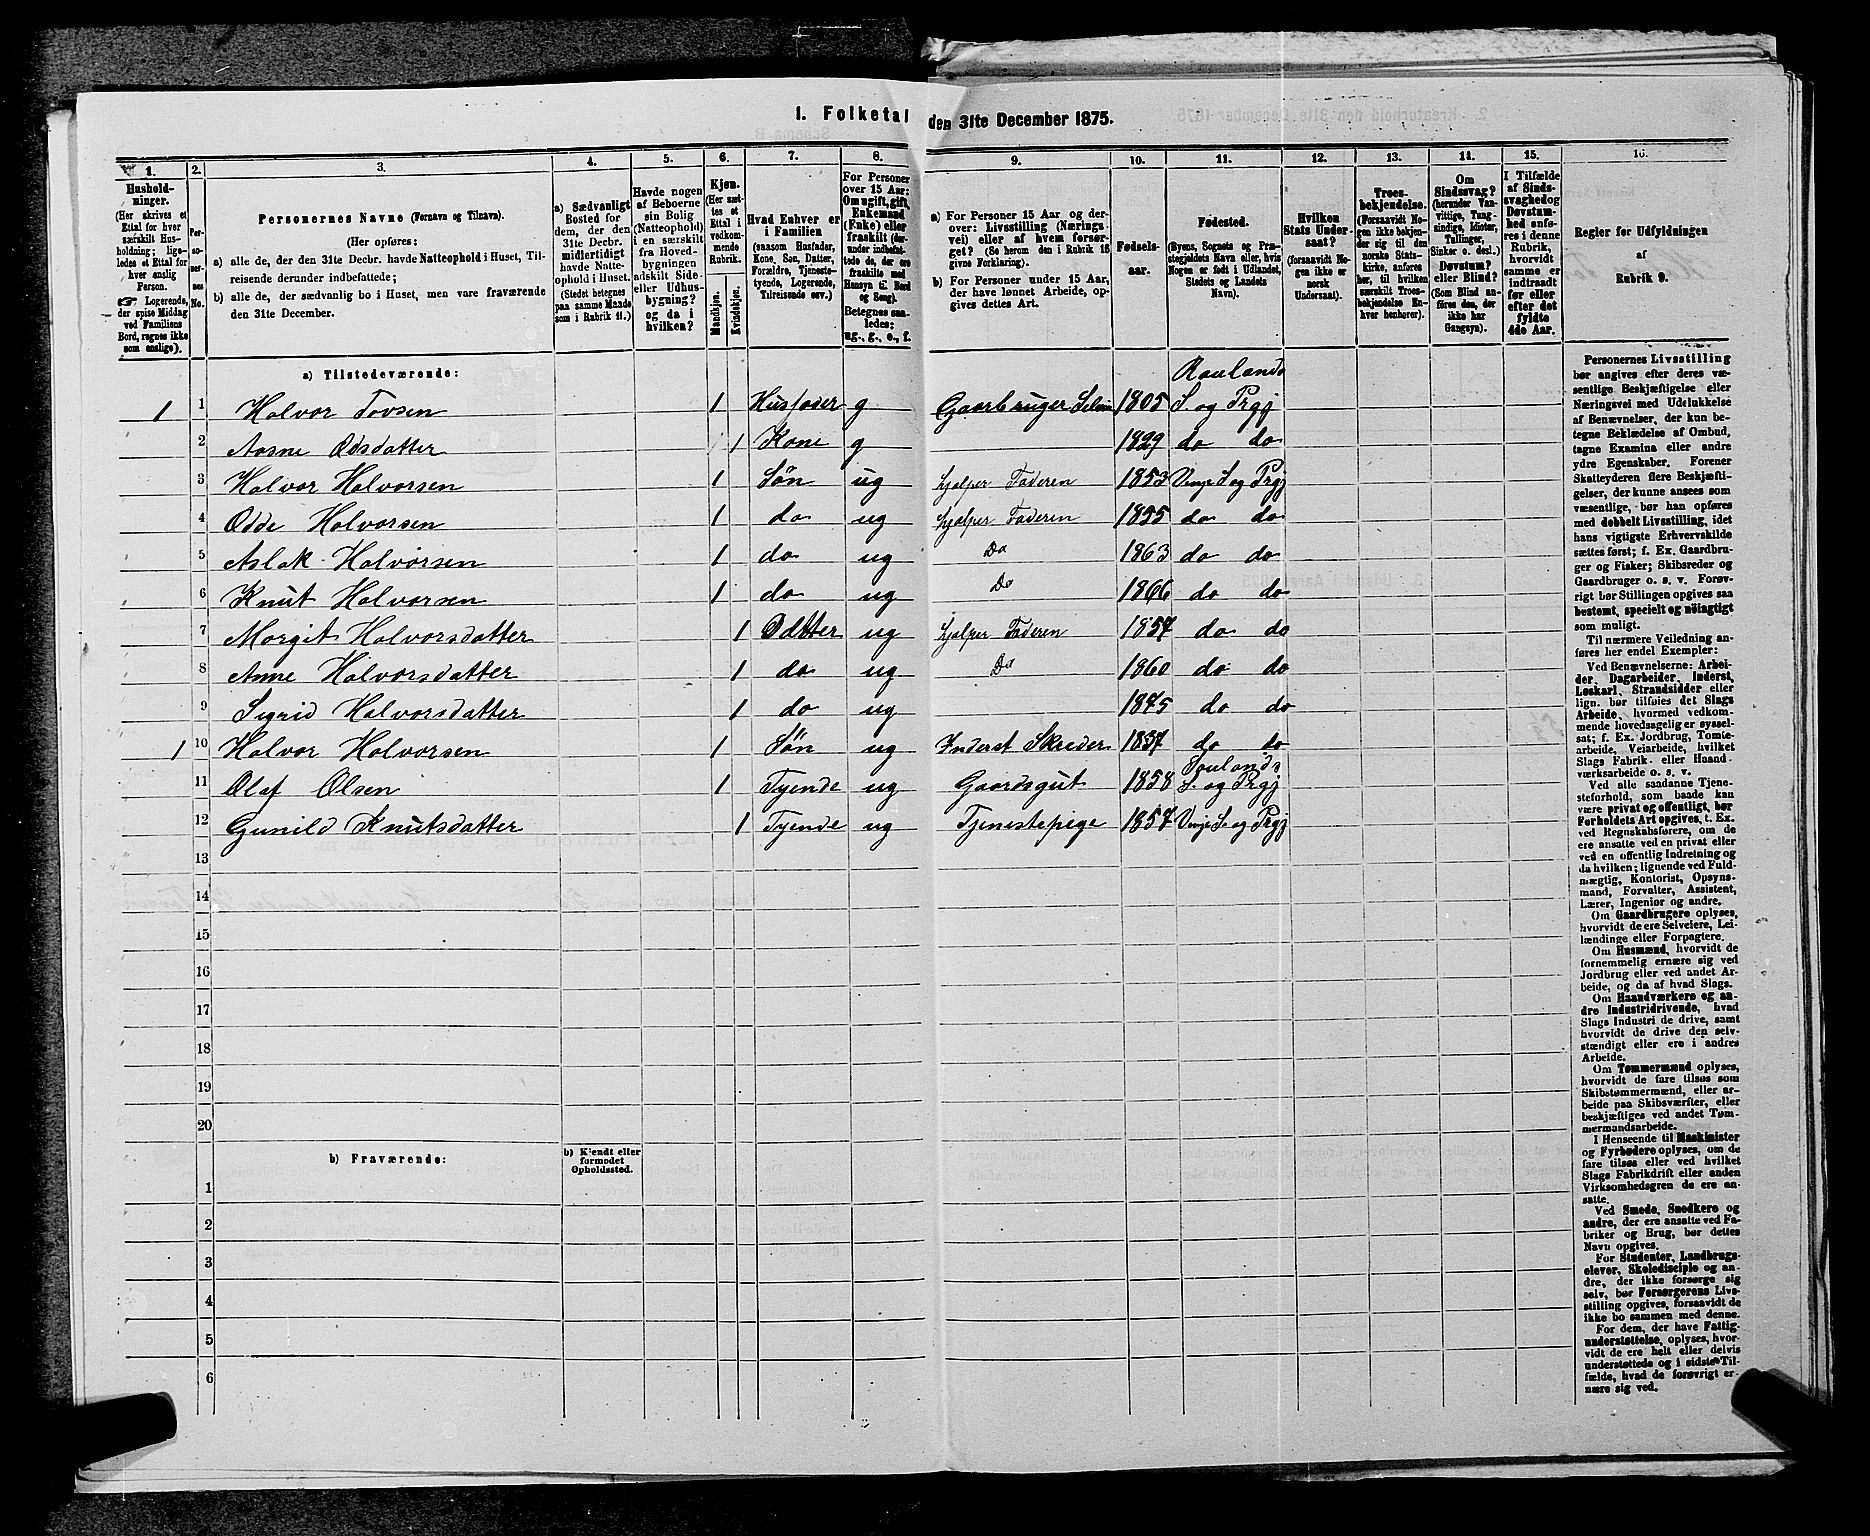 1. Folketal den 31te December 1875.
1. 2. 3. 4. 5. 6. 7. 8. 9. 10. 11. 12. 13. 14. 15. 16.
Hushold-
ninger.
(Her skrives et
Ettal for hver
særskilt Hus-
holdning; lige-
ledes et Ettal for
hver enslig
Person.
☞ Logerende,
der spise Middag
ved Familiens
Bord, regnes ikke
som enslige).
Per-
so-
ner-
nes
No.
Personernes Navne (Fornavn og Tilnavn).
(Her opføres:
a) alle de, der den 31te Decbr. havde Natteophold i Huset, Til-
reisende derunder indbefattede;
b) alle de, der sædvanlig bo i Huset, men vare fraværende
den 31te December.
a) Sædvanligt
Bosted for
dem, der den
31te Decbr.
midlertidigt
havde Natte-
ophold i Huset.
(Stedet betegnes
paa samme Maade
som i Rubrik 11.)
Havde nogen
af Beboerne
sin Bolig
(Natteophold)
i en særskilt
fra Hoved-
bygningen
adskilt Side-
eller Udhus-
bygning?
og da i
hvilken?
Kjøn.
(Her sæt-
tes et
Ettal i
vedkom-
mende
Rubrik.
Mandkjøn.
Kvindekjøn.
Hvad Enhver er
i Familien
(saasom Husfader,
Kone, Søn, Datter,
Forældre, Tjeneste-
tyende, Logerende,
Tilreisende osv.)
For Personer
over 15 Aar:
Om ugift, gift,
Enkemand
(Enke) eller
fraskilt (der-
under indbefat-
tede de, der ere
fraskilte med
Hensyn til Bord
og Seng).
Betegnes saa-
ledes:
ug., g., e., f.
a) For Personer 15 Aar og der-
over: Livsstilling (Nærings-
vei) eller af hvem forsør-
get? (Se herom den i Rubrik 16
givne Forklaring).
b) For Personer under 15 Aar,
der have lønnet Arbeide, op-
gives dettes Art.
Fødsels-
aar.
Fødested.
(Byens, Sognets og Præ-
stegjeldets Navn, eller, hvis
Nogen er født i Udlandet,
Stedets og Landets
Navn).
Hvilken
Stats Under-
saat?
(forsaavidt No-
gen ikke er
norsk
Undersaat).
Troes-
bekjendelse.
(Forsaavidt No-
gen ikke bekjen-
der sig til den
norske Stats-
kirke, anføres
her, til hvilken
særskilt Troes-
bekjendelse En-
hver henhører).
Om
Sindssvag?
(herunder Van-
vittige, Tung-
sindige, Idioter,
Tullinger,
Sinker o. desl.).
Døvstum?
eller Blind?
(Som Blind an-
føres den, der
ikke har
Gangsyn).
I Tilfælde
af Sinds-
svaghed og
Døvstum-
hed anføres
i denne
Rubrik,
hvorvidt
samme er
indtraadt
før eller
efter det
fyldte
4de Aar.
Regler for Udfyldningen
af
Rubrik 9.
a) Tilstedeværende:
Raulands
1 1 Halvor Tovsen 1 Husfader g Gaardbruger Selvei 1805 S. og Prgj
2 Aasne Odsdatter 1 Kone g 1829 do do
3 Halvor Halvorsen 1 Søn ug hjælper Faderen 1853 Vinje S og Prgj
4 Odde Halvorsen 1 do ug hjælper Faderen 1855 do do
5 Aslak Halvorsen 1 do ug Do 1863 do do
6 Knut Halvorsen 1 do ug Do 1866 do do
7 Margit Halvorsdatter 1 Datter ug hjælper Faderen 1857 do do
8 Anne Halvorsdatter 1 do ug Do 1860 do do
9 Sigrid Halvorsdatter 1 do ug 1875 do do
1 10 Halvor Halvorsen 1 Søn ug Inderst Skreder 1837 do do
Raulands
11 Olaf Olsen 1 Tyende ug Gaardsgut 1858 S. og Prgj
12 Gunild Knutsdatter 1 Tyende ug Tjenestepige 1857 Vinje S. og Prgj
13
14
15
16
17
18
19
20
b) Fraværende:
b) Kjendt eller
formodet
Opholdssted.
1
2
3
4
5
6
Personernes Livsstilling
bør angives efter deres væ-
sentlige Beskjæftigelse eller
Næringsvei med Udelukkelse
af Benævnelser, der kun be-
tegne Beklædelse af Ombud,
tagne Examina eller andre
ydre Egenskaber. Forener
Skatteyderen flere Beskjæfti-
gelser, der kunne ansees som
væsentlige, bør han opføres
med dobbelt Livsstilling, idet
hans vigtigste Erhvervskilde
sættes først; f. Ex. Gaardbru-
ger og Fisker; Skibsreder og
Gaardbruger o. s. v. Forøv-
rigt bør Stillingen opgives saa
bestemt, specielt og nøiagtigt
som muligt.
Til nærmere Veiledning an-
føres her endel Exempler:
Ved Benævnelserne: Arbei-
der, Dagarbeider, Inderst,
Løskarl, Strandsidder eller
lign. bør tilføies det Slags
Arbeide, hvormed vedkom-
mende hovedsagelig er syssel-
sat; f. Ex. Jordbrug, Tomte-
arbeide, Veiarbeide, hvilket
Slags Fabrik- eller Haand-
værksarbeide o. s. v.
Ved alle saadanne Tjene-
steforhold, som baade kan
være privat og offentligt, bør
Forholdets Art opgives, t. Ex.
ved Regnskabsførere, om de
ere ansatte ved en privat eller
ved en offentlig Indretning og
da hvilken; lignende ved Fuld-
mægtig, Kontorist, Opsyns-
mand, Forvalter, Assistent,
Lærer, Ingeniør og andre.
Om Gaardbrugere oplyses,
hvorvidt de ere Selveiere, Lei-
lændinge eller Forpagtere.
Om Husmænd, hvorvidt de
fornemmelig ernære sig ved
Jordbrug eller ved andet Ar-
beide, og da af hvad Slags.
Om Haandværkere og an-
dre Industridrivende, hvad
Slags Industri de drive, samt
hvorvidt de drive den selv-
stændigt eller ere i andres
Arbeide.
Om Tømmermænd oplyses,
hvorvidt de fare tilsøs som
Skibstømmermænd, eller ar-
beide paa Skibsværfter, eller
beskjæftiges ved andet Tøm-
mermandsarbeide.
I Henseende til Maskinister
og Fyrbødere oplyses, om de
fare tilsøs eller ved hvilket
Slags Fabrikdrift eller anden
Virksomhedsgren de ere an-
satte.
Ved Smede, Snedkere og
andre, der ere ansatte ved Fa-
briker og Brug, bør dettes
Navn opgives.
For Studenter, Landbrugs-
elever, Skoledisciple og an-
dre, der ikke forsørge sig
selv, bør Forsørgerens Livs-
stilling opgives, forsaavidt de
ikke bo sammen med denne.
For dem, der have Fattig-
understøttelse, oplyses, hvor-
vidt de ere helt eller delvis
understøttede og i sidste Til-
fælde, hvad de forøvrigt er-
nære sig ved.